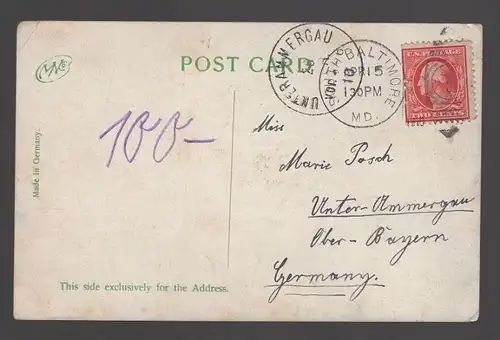 POST CARD
UNTERAMMERGAU
BALTIMORE
APR 15
130PM
MD.
U.S. POSTAGE
TWO CENTS
100-
Miss
Marie Posch
Unter-Ammergau
Ober-Bayern
Germany.
Made in Germany.
This side exclusively for the Address.